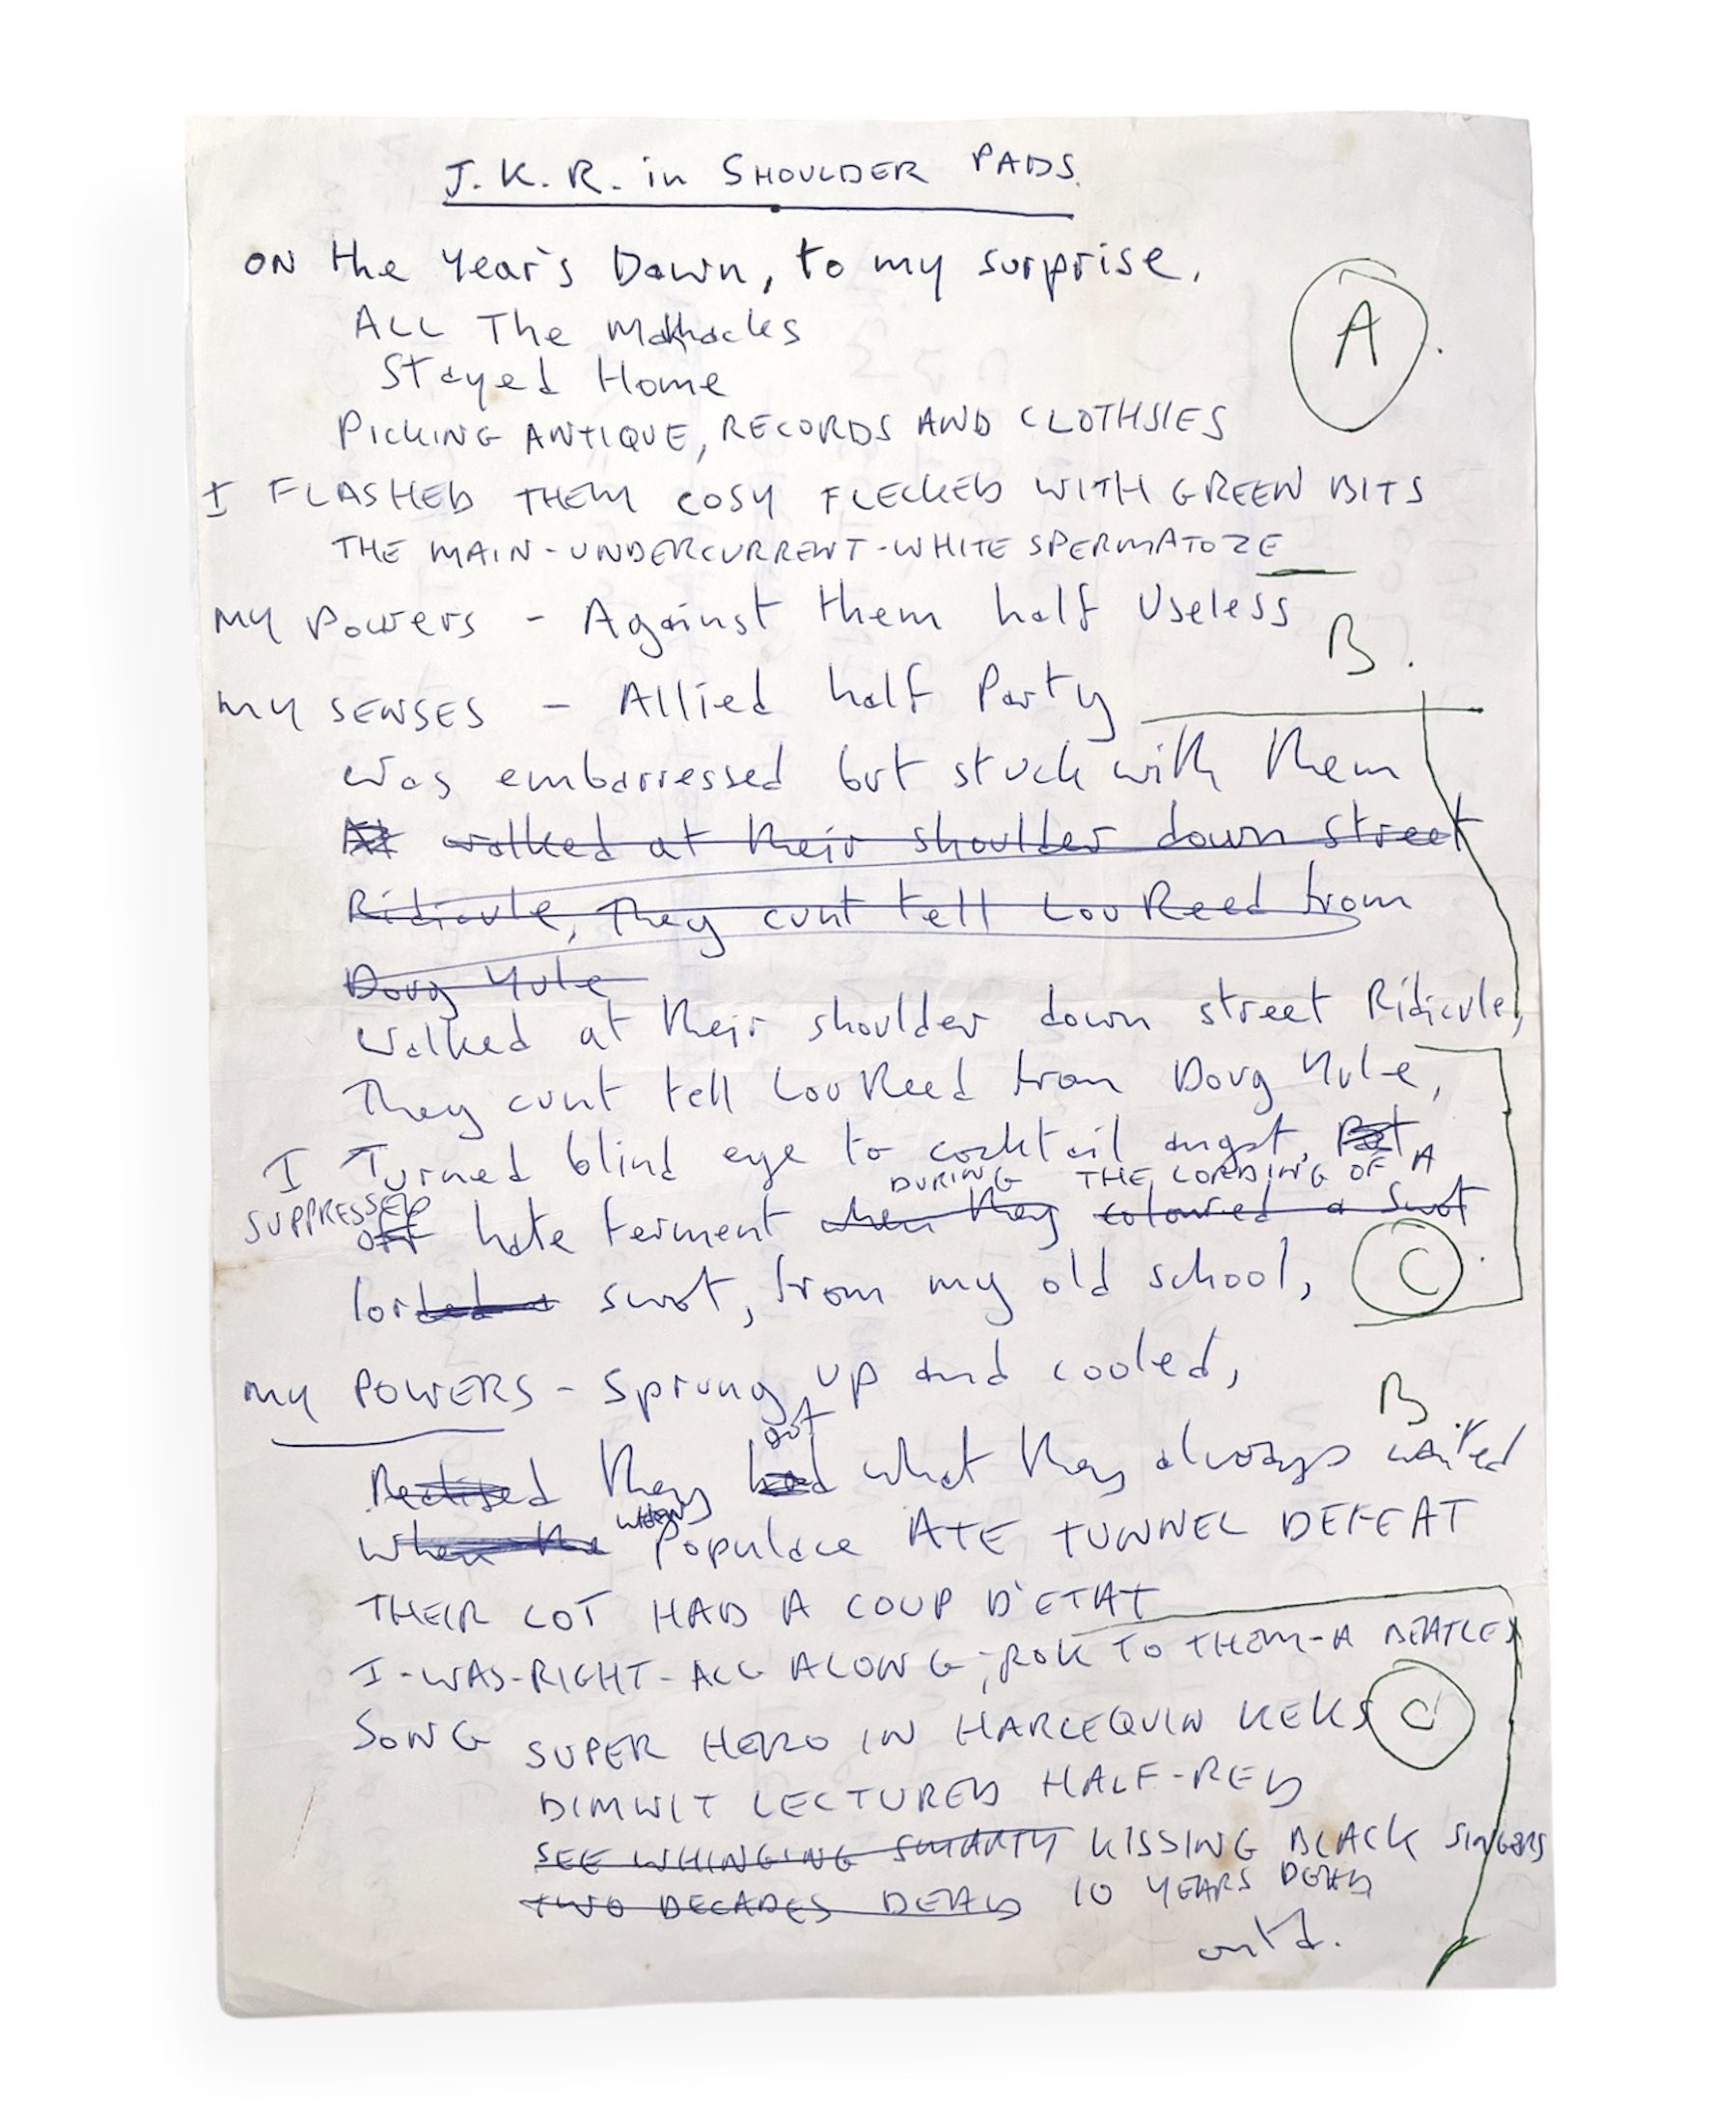 J.K.R. in SHOULDER PADS.
ON the Year's Dawn, to my surprise,
ALL The
Stayed Home
A.
PICKING ANTIQUE, RECORDS AND CLOTHSIES
I FLASHED THEM COSY FLECKED WITH GREEN BITS
THE MAIN-UNDERCURRENT-WHITE SPERMATOZE
MY Powers - Against them half Useless
B.
MY SENSES - Allied half Party
was embarressed but stuck with them
walked at their shoulder down street
Ridicule, They cunt tell Lou Reed from
Doug Yule
Walked at their shoulder down street Ridicule,
They cunt tell Lou Reed from Doug Yule,
I Turned blind eye to cocktail angst, A
DURING THE LORDING OF
SUPPRESSED off hate ferment when they coloured a swot
C.
lorded a swot, from my old school,
MY POWERS - Sprung up and cooled,
B.
got
Realised They had what they always wanted
when
When the Populace ATE TUNNEL DEFEAT
THEIR LOT HAD A COUP D'ETAT
I-WAS-RIGHT-ALL ALONG; ROK TO THEM-A BEATLES
SONG SUPER HERO IN HARLEQUIN KEKS
C
DIMWIT LECTURED HALF-RED
SEE WHINGING SMARTY KISSING BLACK SINGERS
TWO DECADES DEAD 10 YEARS DEAD
contd.